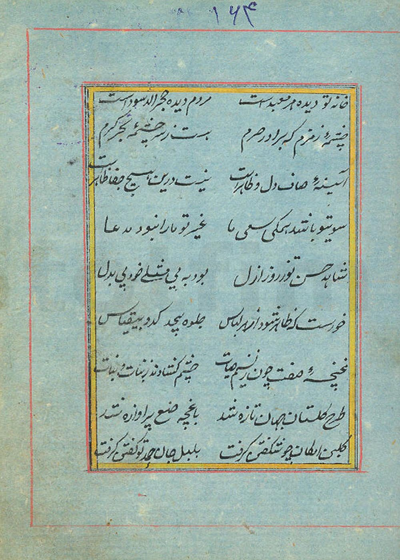 ۱۶۴
خانه تو دیده هر معبدست مردم دیده حجر الاسودست
چشمهٔ زمزم که برادر حرم ست ز سرچشمهٔ بحر کرم
آئینهٔ صاف دل و ظاهرست نیست درین هیچ خفا ظاهرست
سوی تو باشد همگی سعی ما غیر تو ما را نبود مدعا
شاهد حسن تو ز روز ازل بود به بی مثلی خود بی بدل
خواست که ظاهر شود از هر لباس جلوه بیحد کرد و بیقیاس
غنچهٔ صفت چون چشم گشادند بنات و نبات
طرح گلستان جهان تازه شد باغچه صنع پر اوازه شد
گلبن امکان چو شگفتن گرفت بلبل جان حمد تو گفتن گرفت